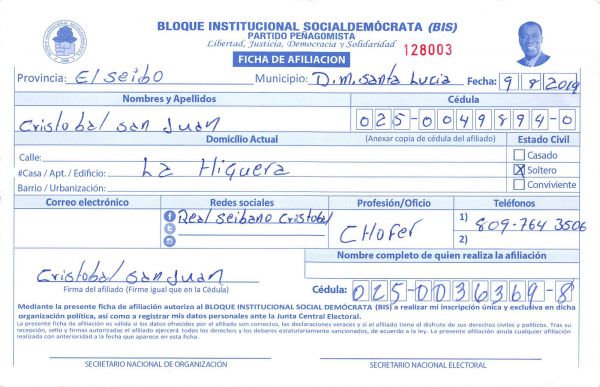 BLOQUE INSTITUCIONAL SOCIALDEMÓCRATA (BIS)
PARTIDO PEÑAGOMISTA
Libertad, Justicia, Democracia y Solidaridad
128003
FICHA DE AFILIACION
Provincia: El seibo Municipio: D.M. santa Lucia Fecha: 9/8/2019
Nombres y Apellidos Cédula
Cristobal san Juan 025-0049894-0
Domicilio Actual (Anexar copia de cédula del afiliado) Estado Civil
Calle: Casado
#Casa / Apt. / Edificio: La Higuera X Soltero
Barrio / Urbanización: Conviviente
Correo electrónico Redes sociales Profesión/Oficio Teléfonos
Real seibano Cristobal CHofer 1) 809-764 3506
2)
Nombre completo de quien realiza la afiliación
Cristobal san Juan
Firma del afiliado (Firme igual que en la Cédula) Cédula: 025-0036369-8
Mediante la presente ficha de afiliación autorizo al BLOQUE INSTITUCIONAL SOCIAL DEMÓCRATA (BIS) a realizar mi inscripción única y exclusiva en dicha
organización política, así como a registrar mis datos personales ante la Junta Central Electoral.
La presente ficha de afiliación es válida si los datos ofrecidos por el afiliado son correctos, las declaraciones veraces y si el afiliado tiene el disfrute de sus derechos civiles y políticos. Tras su
recepción, sello y firmas autorizadas el afiliado ejercerá todos los derechos y los deberes estatutariamente sancionados, de acuerdo a la ley. La presente afiliación anula cualquier afiliación
realizada con anterioridad a la fecha que aparece en esta ficha.
SECRETARIO NACIONAL DE ORGANIZACIÓN SECRETARIO NACIONAL ELECTORAL